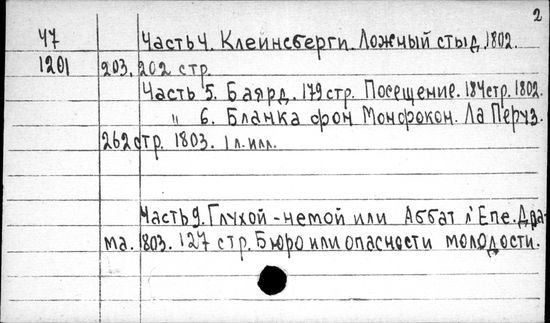 2
47 Часть 4. Клейнсберги. Ложный стыд. 1802.
1201 203, 202 стр.
Часть 5. Баярд. 179 стр. Посещение. 184 стр. 1802.
" 6. Бланка фон Монфокон. Ла Перуз.
262 стр. 1803. 1 л. илл.
Часть 9. Глухой-немой или Аббат л'Епе. Дра-
ма. 1803. 127 стр. Бюро или опасности молодости.